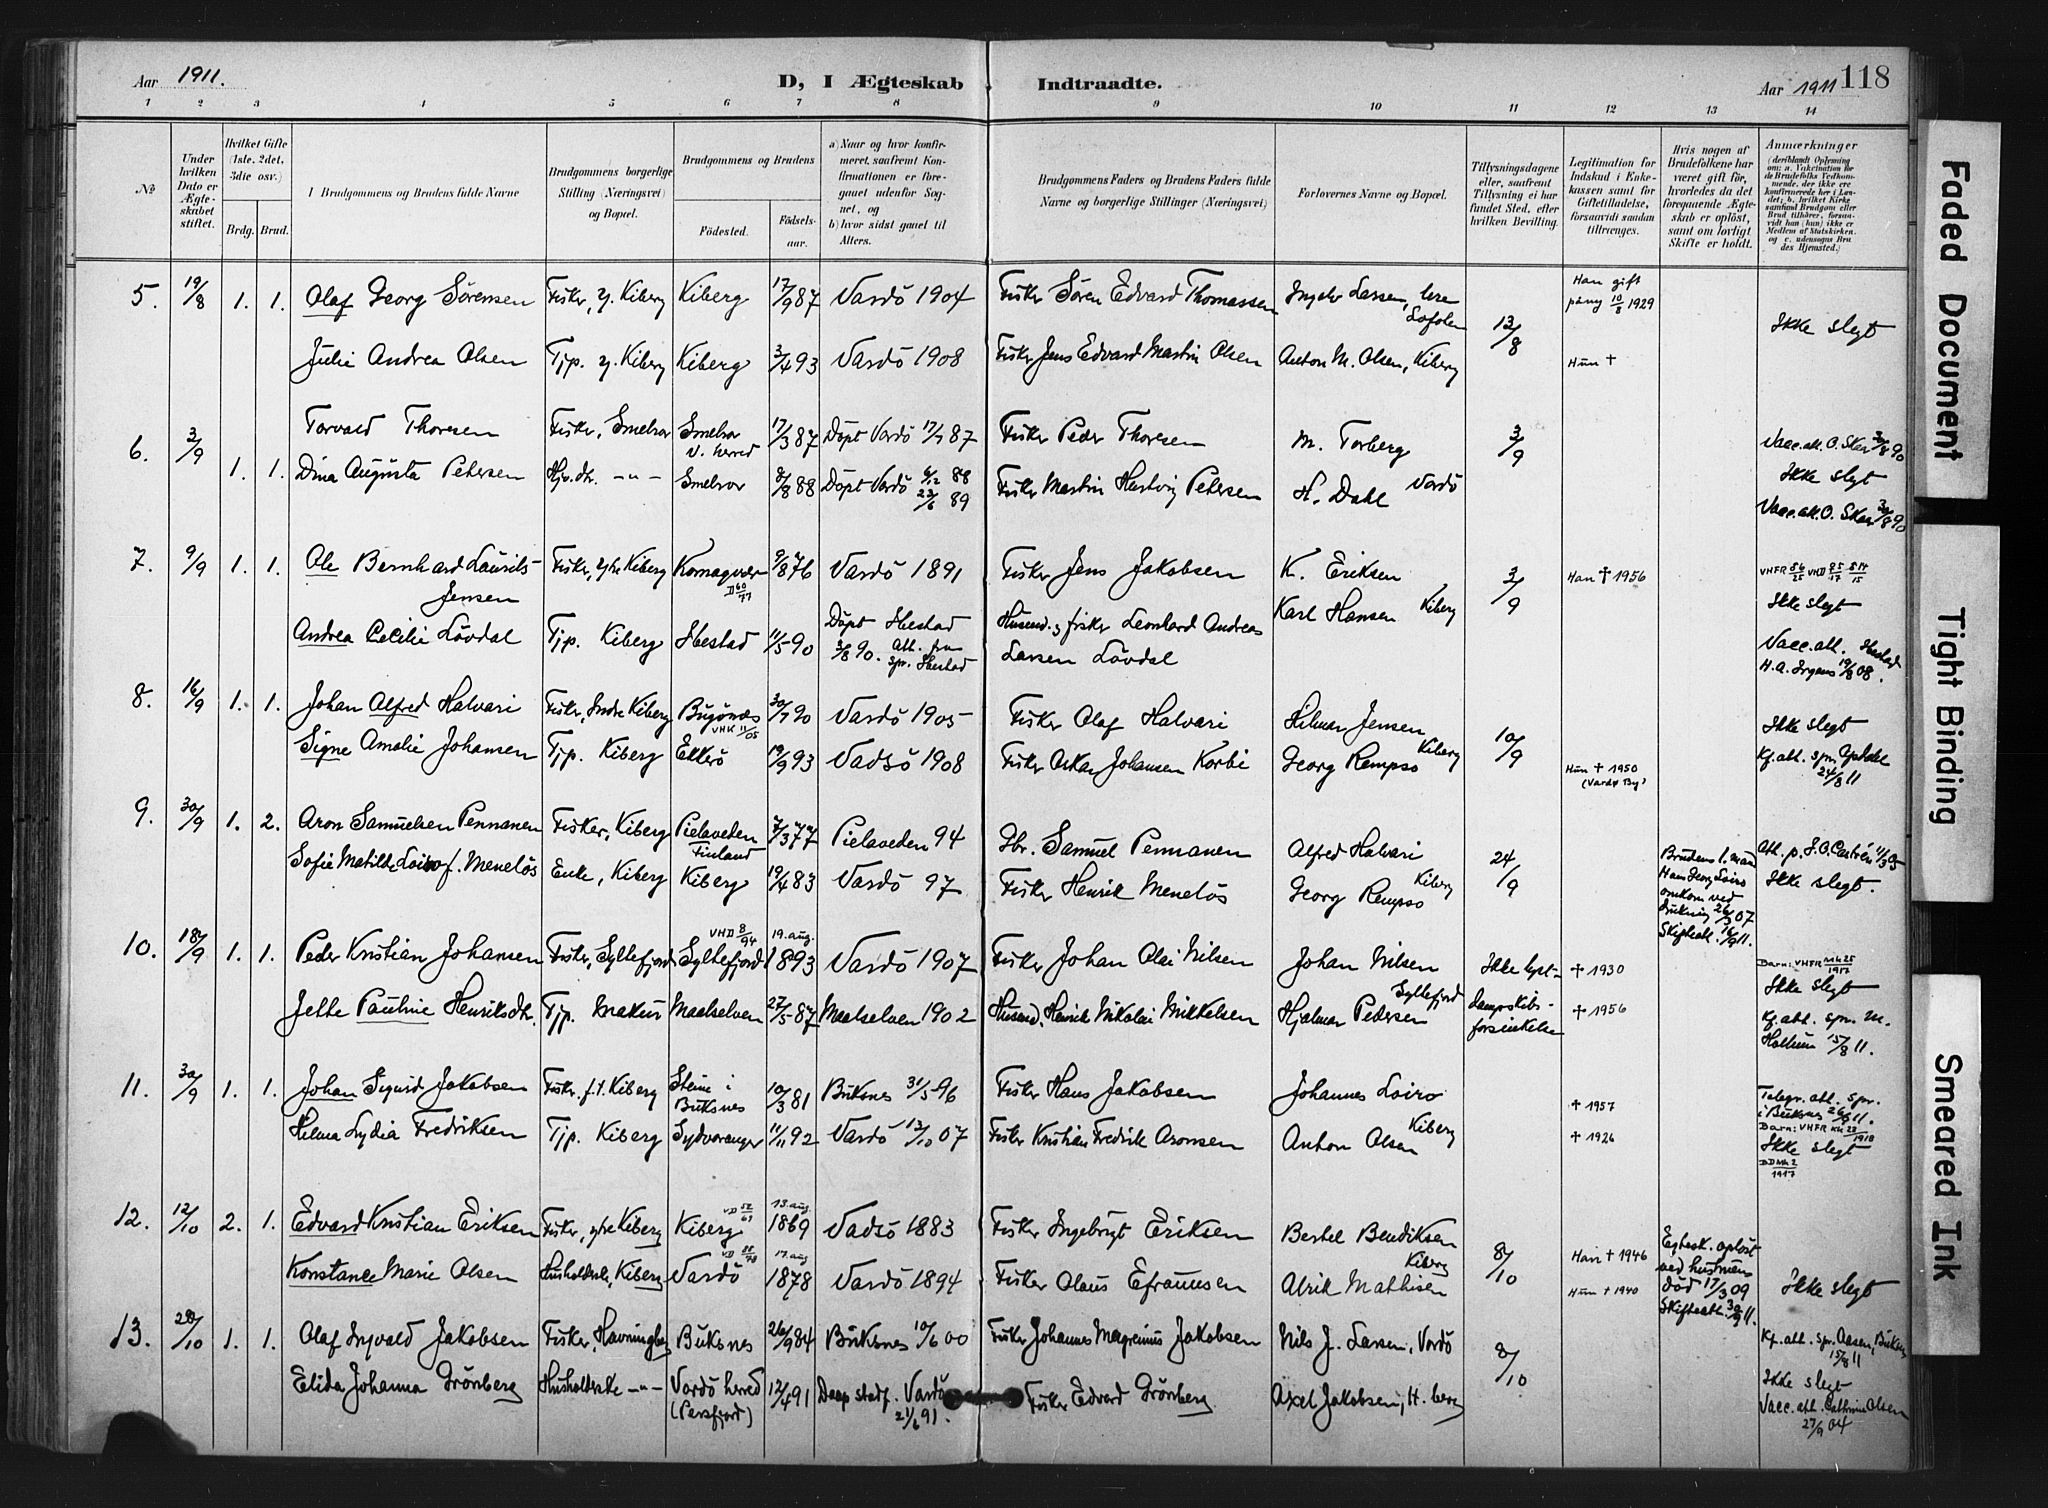 Aar 1911.
D, I Ægteskab Indtraadte.
Aar 1911 118
1 2 3 4 5 6 7 8 9 10 11 12 13 14
No
Under hvilken Dato er Ægteskabet stiftet.
Hvilket Gifte (1ste, 2det, 3die osv.)
Brdg. Brud.
I Brudgommens og Brudens fulde Navne
Brudgommens borgerlige Stilling (Næringsvei) og Bopæl.
Brudgommens og Brudens
Fødested.
Fødselsaar.
a) Naar og hvor konfirmeret, saafremt Konfirmationen er foregaaet udenfor Sognet, og
b) hvor sidst gaaet til Alters.
Brudgommens Faders og Brudens Faders fulde Navne og borgerlige Stillinger (Næringsvei)
Forlovernes Navne og Bopæl.
Tillysningsdagene eller, saafremt Tillysning ei har fundet Sted, efter hvilken Bevilling.
Legitimation for Indskud i Enkekassen samt for Giftetilladelse, forsaavidt saadan tiltrænges.
Hvis nogen af Brudefolkene har været gift før, hvorledes da det foregaaende Ægteskab er opløst, samt om lovligt Skifte er holdt.
Anmærkninger
5. 19/8 1. 1. Olaf Georg Sørensen Fisker, y. Kiberg Kiberg 17/9 87 Vardö 1904 Fisker Søren Edvard Thomassen Ingebr Larsen, Lofoten 13/8 Han gift påny 10/8 1929 Ikke slegt
Julie Andrea Olsen Tjp. y. Kiberg Kiberg 3/4 93 Vardö 1908 Fisker Jens Edvard Martin Olsen Anton M. Olsen, Kiberg Hun †
6. 3/9 1. 1. Torvald Thoresen Fisker, Smelror Smelror V. herred 17/3 87 Döpt Vardö 17/7 87 Fisker Peder Thoresen M. Torberg 3/9 Vacc. att. O. Skar 30/8 90
Dina Augusta Petersen Hjv. dtr. -"- Smelror 8/8 88 Döpt Vardö 6/12 88 23/6 89 Fisker Martin Hartvig Petersen H. Dahl Vardö Ikke slegt
Vacc. att. O. Skar 30/8 90
7. 9/9 1. 1. Ole Bernhard Laurits Jensen Fisker, ytre Kiberg Komagvær D 60/77 9/8 76 Vardö 1891 Fisker Jens Jakobsen K. Eriksen 3/9 Han † 1956 VHFR 56/25 VHD 85/17 514/15
Ikke slegt
Andrea Cecilie Lövdal Tjp. Kiberg Ibestad 11/5 90 Döpt Ibestad 3/8 90. Att. fra spr. Ibestad Husmd. & fisker Leonhard Andreas Larsen Lövdal Karl Hansen Kiberg Vacc. att. Ibestad H. A. Irgens 19/8 08.
8. 16/9 1. 1. Johan Alfred Halvari Fisker, Indre Kiberg Bugönes VHK 11/05 30/7 90 Vardö 1905 Fisker Olaf Halvari Hilmar Jensen 10/9 Ikke slegt
Signe Amalie Johansen Tjp. Kiberg Ekkerö 19/9 93 Vadsö 1908 Fisker Oskar Johansen Korbi Georg Rempso Kiberg Hun † 1950 (Vardø By) Kf. att. spr. 24/8 11
9. 30/9 1. 2. Aron Samuelsen Pennanen Fisker, Kiberg Pielaveden Finland 7/3 77 Pielaveden 94 Gbr. Samuel Pennanen Alfred Halvari 24/9 Att. p. J. O. Castrén 11/3 05
Sofie Matilde Loiro f. Menelös Enke, Kiberg Kiberg 19/4 83 Vardö 97 Fisker Henrik Menelös Georg Rempso Kiberg Brudens 1. mand Hans Georg Loiro omkom ved drukning 26/3 07 Skifteatt. 16/9 11. Ikke slegt.
10. 18/9 1. 1. Peder Kristian Johansen Fisker, Syltefjord VHD 8/94 Syltefjord 19. aug. 1893 Vardö 1907 Fisker Johan Olai Nilsen Johan Nilsen Ikke lyst - † 1930 Barn: VHFR 25/1917
Ikke slegt
Jette Pauline Henriksdtr. Tjp. Makur Maalselven 27/5 87 Maalselven 1902 Husmd. Henrik Nikolai Mikkelsen Hjalmar Pedersen Syltefjord Dampskibsforsinkelse † 1956 Kf. att. spr. M. 15/8 11.
11. 30/9 1. 1. Johan Sigurd Jakobsen Fisker f.t. Kiberg Steine i Buksnes 10/3 81 Buksnes 31/5 96 Fisker Hans Jakobsen Johannes Loiro † 1957 Telegr. att. spr. i Buksnes 26/9 11.
Helma Lydia Fredriksen Tjp. Kiberg Sydvaranger 11/11 92 Vardö 13/10 07 Fisker Kristian Fredrik Aronsen Anton Olsen Kiberg † 1926 Barn: VHFR 23/1918
Ikke slegt
12. 12/10 2. 1. Edvard Kristian Eriksen Fisker, ytre Kiberg Kiberg VD 52/69 13. aug. 1869 Vadsö 1883 Fisker Ingebrigt Eriksen Bertel Bendiksen Kiberg 8/10 Han † 1946 Egtesk. oplöst ved hustruens död 17/3 09 Skifteatt. 30/9 11.
Konstance Marie Olsen Husholdske, Kiberg Vardö 17. aug 1878 Vardö 1894 Fisker Olaus Efraimsen Alrik Mathisen Hun † 1940 Ikke slegt
13. 28/10 1. 1. Olaf Ingvald Jakobsen Fisker, Havningberg Buksnes 26/9 84 Buksnes 10/6 00 Fisker Johannes Magrenius Jakobsen Nils J. Larsen, Vardö 8/10 Kf. att. spr. Aasen, Buksnes 15/8 11
Elida Johanna Grönberg Husholderske -"- Vardö herred (Persfjord) 12/4 91 Daap stadf. Vardö 21/6 91. Fisker Edvard Grönberg Axel Jakobsen, H. berg Ikke slegt
Vacc. att. Cathrine Olsen 27/9 04
Faded Document
Tight Binding
Smeared Ink